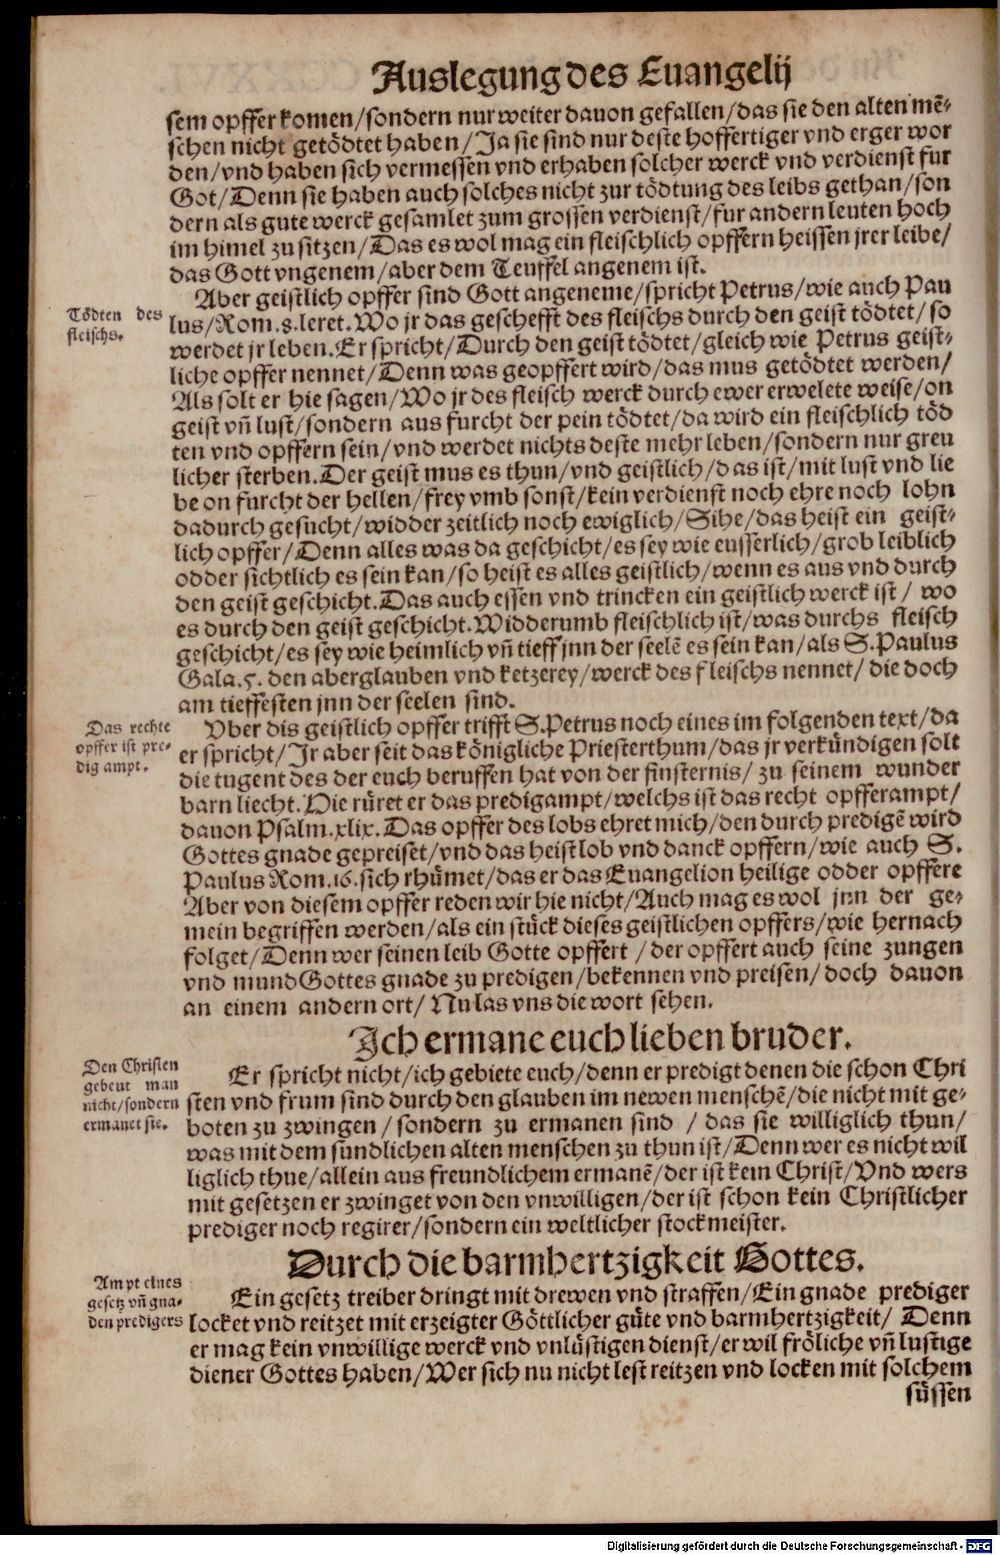 Auslegung des Euangelij
sem opffer komen/sondern nur weiter dauon gefallen/das sie den alten mẽ-
schen nicht getödtet haben/Ja sie sind nur deste hoffertiger vnd erger wor
den/vnd haben sich vermessen vnd erhaben solcher werck vnd verdienst fur
Got/Denn sie haben auch solches nicht zur tödtung des leibs gethan/son
dern als gute werck gesamlet zum grossen verdienst/fur andern leuten hoch
im himel zu sitzen/Das es wol mag ein fleischlich opffern heissen jrer leibe/
das Gott vngenem/aber dem Teuffel angenem ist.
Aber geistlich opffer sind Gott angeneme/spricht Petrus/wie auch Pau
Tödten des
fleischs.
lus/Rom.8.leret.Wo jr das geschefft des fleischs durch den geist tödtet/so
werdet jr leben.Er spricht/Durch den geist tödtet/gleich wie Petrus geist-
liche opffer nennet/Denn was geopffert wird/das mus getödtet werden/
Als solt er hie sagen/Wo jr des fleisch werck durch ewer erwelete weise/on
geist vñ lust/sondern aus furcht der pein tödtet/da wird ein fleischlich töd
ten vnd opffern sein/vnd werdet nichts deste mehr leben/sondern nur greu
licher sterben.Der geist mus es thun/vnd geistlich/das ist/mit lust vnd lie
be on furcht der hellen/frey vmb sonst/kein verdienst noch ehre noch lohn
dadurch gesucht/widder zeitlich noch ewiglich/Sihe/das heist ein geist-
lich opffer/Denn alles was da geschicht/es sey wie eusserlich/grob leiblich
odder sichtlich es sein kan/so heist es alles geistlich/wenn es aus vnd durch
den geist geschicht.Das auch essen vnd trincken ein geistlich werck ist/ wo
es durch den geist geschicht.Widderumb fleischlich ist/was durchs fleisch
geschicht/es sey wie heimlich vñ tieff jnn der seelẽ es sein kan/als S.Paulus
Gala.5. den aberglauben vnd ketzerey/werck des fleischs nennet/ die doch
am tieffesten jnn der seelen sind.
Das rechte
opffer ist pre-
dig ampt.
Vber dis geistlich opffer trifft S.Petrus noch eines im folgenden text/da
er spricht/Jr aber seit das königliche Priesterthum/das jr verkündigen solt
die tugent des der euch beruffen hat von der finsternis/ zu seinem wunder
barn liecht.Hie rüret er das predigampt/welchs ist das recht opfferampt/
dauon Psalm.xlix.Das opffer des lobs ehret mich/den durch predigẽ wird
Gottes gnade gepreiset/vnd das heist lob vnd danck opffern/wie auch S.
Paulus Rom.16.sich rhümet/das er das Euangelion heilige odder opffere
Aber von diesem opffer reden wir hie nicht/Auch mag es wol jnn der ge-
mein begriffen werden/als ein stück dieses geistlichen opffers/wie hernach
folget/Denn wer seinen leib Gotte opffert /der opffert auch seine zungen
vnd mund Gottes gnade zu predigen/bekennen vnd preisen/ doch dauon
an einem andern ort/ Nu las vns die wort sehen.
Ich ermane euch lieben bruder.
Den Christen
gebeut man
nicht/sondern
ermanet sie.
Er spricht nicht/ich gebiete euch/denn er predigt denen die schon Chri
sten vnd frum sind durch den glauben im newen menschẽ/die nicht mit ge-
boten zu zwingen /sondern zu ermanen sind / das sie williglich thun/
was mit dem sundlichen alten menschen zu thun ist/Denn wer es nicht wil
liglich thue/allein aus freundlichem ermanẽ/der ist kein Christ/Vnd wers
mit gesetzen er zwinget von den vnwilligen/der ist schon kein Christlicher
prediger noch regirer/sondern ein weltlicher stockmeister.
Durch die barmhertzigkeit Gottes.
Ampt eines
gesetz vñ gna-
den predigers
Ein gesetz treiber dringt mit drewen vnd straffen/Ein gnade prediger
locket vnd reitzet mit erzeigter Göttlicher güte vnd barmhertzigkeit/ Denn
er mag kein vnwillige werck vnd vnlüstigen dienst/er wil fröliche vñ lustige
diener Gottes haben/Wer sich nu nicht lest reitzen vnd locken mit solchem
süssen
Digitalisierung gefördert durch die Deutsche Forschungsgemeinschaft - DFG